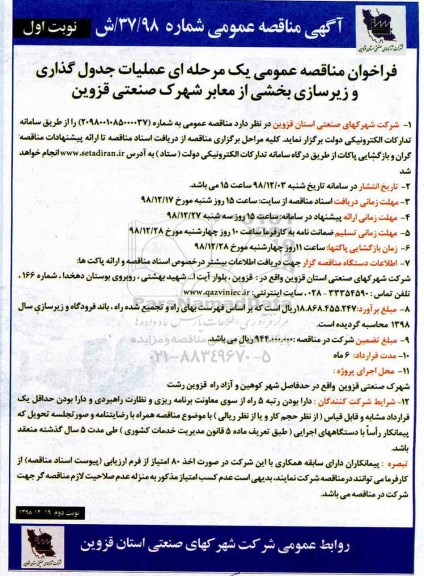 آگهی مناقصه عمومی شماره ۳۷/۹۸/ش
نوبت اول
فراخوان مناقصه عمومی یک مرحله ای عملیات جدول گذاری
و زیرسازی بخشی از معابر شهرک صنعتی قزوین
۱- شرکت شهرکهای صنعتی استان قزوین در نظر دارد مناقصه عمومی به شماره (۲۰۹۸۰۰۱۰۸۵۰۰۰۰۳۷) را از طریق سامانه
تدارکات الکترونیکی دولت برگزار نماید. کلیه مراحل برگزاری مناقصه از دریافت اسناد مناقصه تا ارائه پیشنهادات مناقصه
گران و بازگشایی پاکات از طریق درگاه سامانه تدارکات الکترونیکی دولت ( ستاد ) به آدرس www.setadiran.ir انجام خواهد
شد
۲- تاریخ انتشار در سامانه تاریخ شنبه ۹۸/۱۲/۰۳ ساعت ۱۵ می باشد.
۳- مهلت زمانی دریافت اسناد مناقصه از سایت: ساعت ۱۵ روز شنبه مورخ ۹۸/۱۲/۱۷
۴- مهلت زمانی ارائه پیشنهاد در سامانه: ساعت ۱۵ روز سه شنبه مورخ ۹۸/۱۲/۲۷
۵- مهلت زمانی تسلیم ضمانت نامه به کارفرما ساعت ۱۰ روز چهارشنبه مورخ ۹۸/۱۲/۲۸
۶- زمان بازگشایی پاکتها: ساعت ۱۱ روز چهارشنبه مورخ ۹۸/۱۲/۲۸
۷- اطلاعات دستگاه مناقصه گزار جهت دریافت اطلاعات بیشتر درخصوص اسناد مناقصه و ارائه پاکت ها:
شرکت شهرکهای صنعتی استان قزوین واقع در : قزوین ، بلوار آیت ا.. شهید بهشتی ، روبروی بوستان دهخدا ، شماره ۱۶۶ ،
تلفن تماس : ۳۳۳۵۴۵۹۰ - ۰۲۸ ، سایت اینترنتی: www.qazviniec.ir
۸- مبلغ برآورد: ۱۸.۸۶۸.۴۵۵.۲۴۷ ریال است که بر اساس فهرست بهای راه و تجمیع شده راه ، باند فرودگاه و زیرسازی سال
۱۳۹۸ محاسبه گردیده است.
۹- مبلغ تضمین شرکت در مناقصه : ۹۴۴.۰۰۰.۰۰۰ ریال می باشد.
۱۰- مدت قرارداد: ۶ ماه
۱۱- محل اجرای پروژه :
شهرک صنعتی قزوین واقع در حدفاصل شهر کوهین و آزاد راه قزوین رشت
۱۲- شرایط شرکت کنندگان : دارا بودن رتبه ۵ راه از سوی معاونت برنامه ریزی و نظارت راهبردی و دارا بودن حداقل یک
قرارداد مشابه و قابل قیاس ( از نظر حجم کار و یا از نظر ریالی ) با موضوع مناقصه همراه با رضایتنامه و صورتجلسه تحویل که
پیمانکار رأساً با دستگاههای اجرایی ( طبق تعریف ماده ۵ قانون مدیریت خدمات کشوری ) طی مدت ۵ سال گذشته منعقد
باشد.
تبصره : پیمانکاران دارای سابقه همکاری با این شرکت در صورت اخذ ۸۰ امتیاز از فرم ارزیابی (پیوست اسناد مناقصه) از
کارفرما می توانند در مناقصه شرکت نمایند، بدیهی است عدم کسب امتیاز مذکور به منزله عدم صلاحیت لازم مناقصه گر جهت
شرکت در مناقصه می باشد.
نوبت دوم ۱۹ /۱۲ /۱۳۹۸
روابط عمومی شرکت شهرکهای صنعتی استان قزوین
ParsNamadData
۰۲۱-۸۸۳۴۹۶۷۰-۵